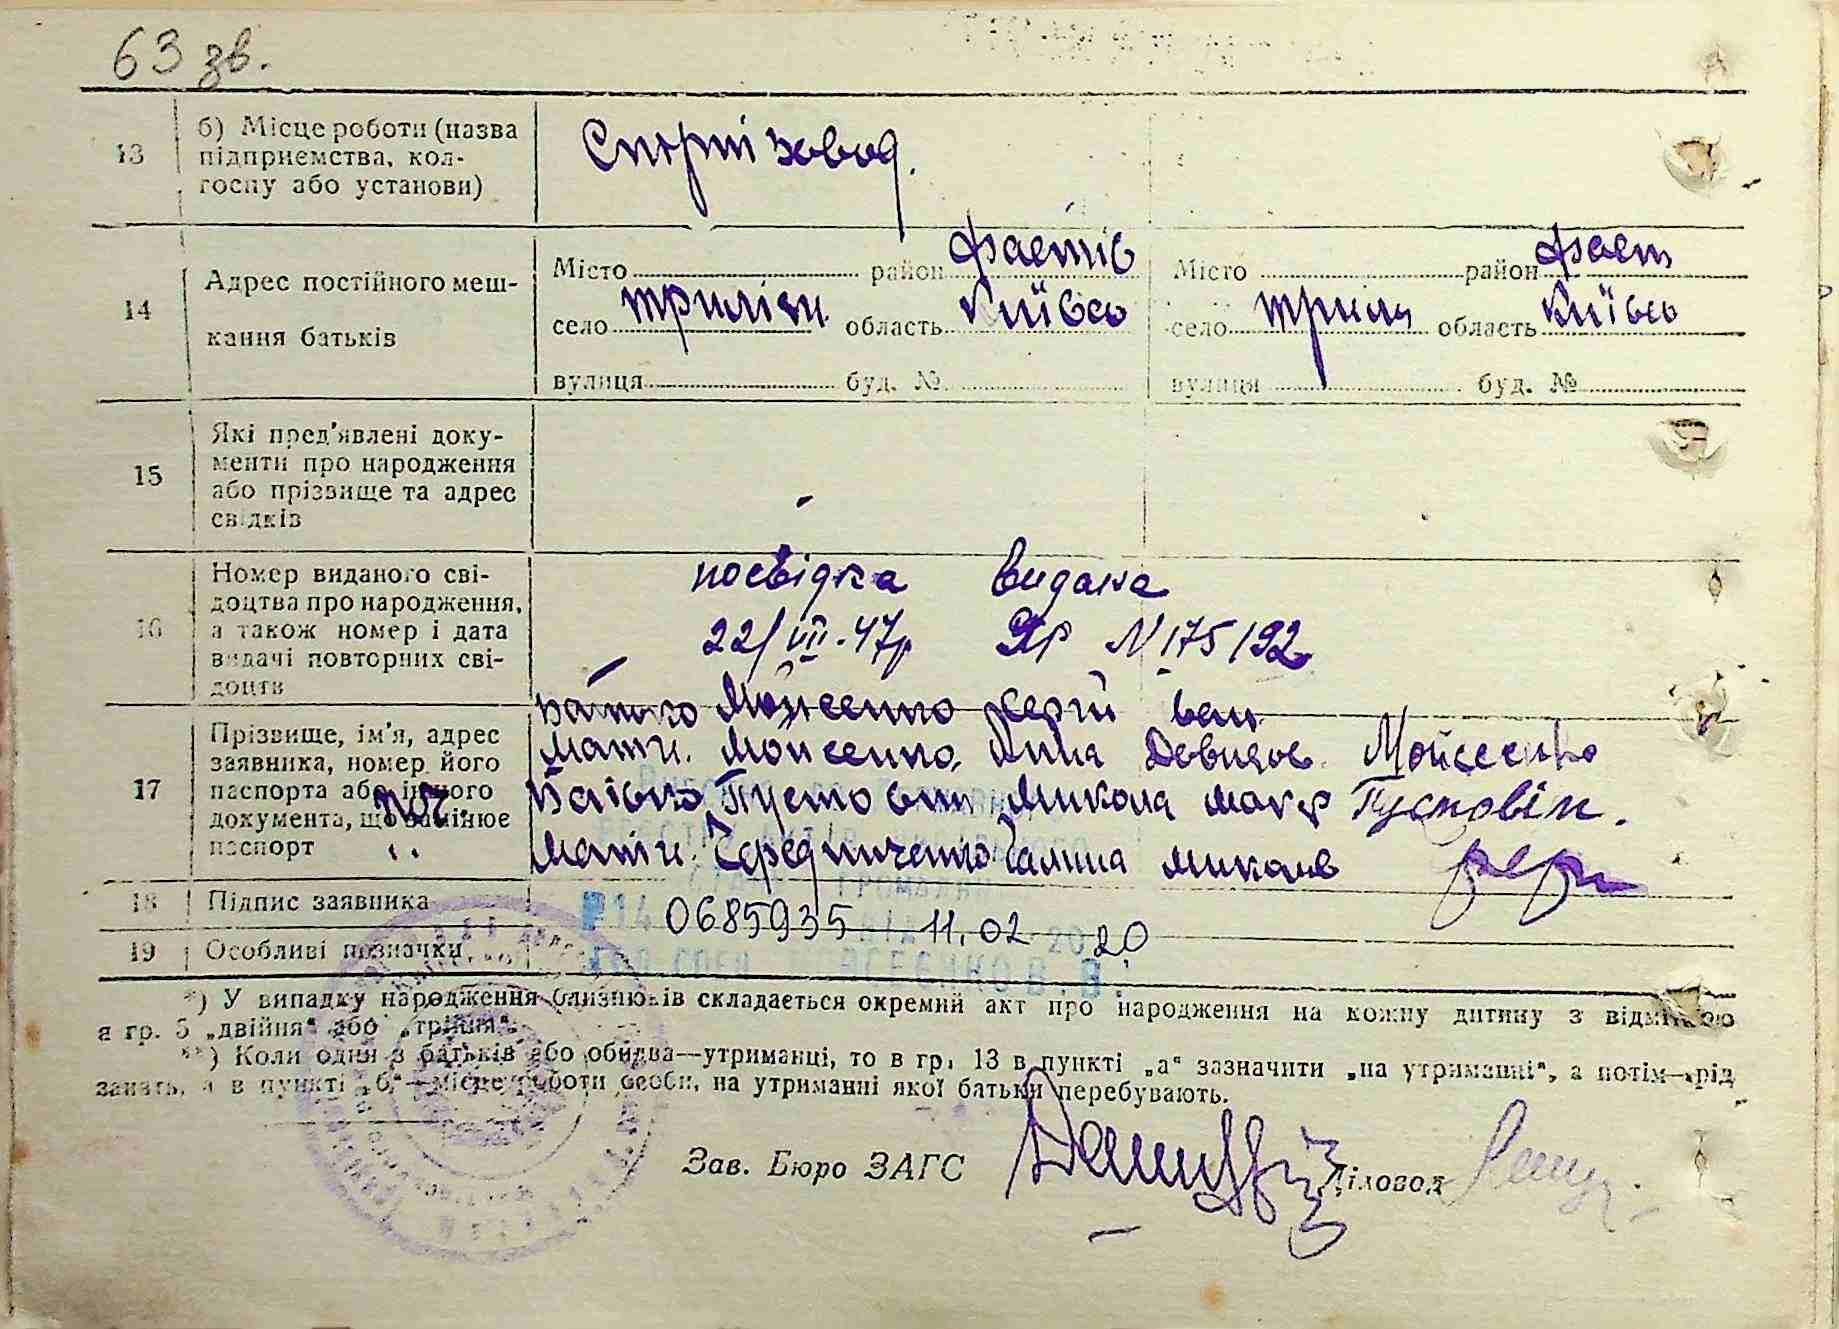 63 зв.
13
б) Місце роботи (назва
підприємства, кол-
госпу або установи)
Спиртзавод.
14
Адрес постійного меш-
кання батьків
Місто район Фастів
село Триліси область Київсь
вулиця буд. №
Місто район Фаст
село область Київсь
вулиця буд. №
15
Які пред'явлені доку-
менти про народження
або прізвище та адрес
свідків
16
Номер виданого сві-
доцтва про народження,
а також номер і дата
видачі повторних сві-
доцтв
посвідка видана
22/VII.47р N 175192
17
Прізвище, ім'я, адрес
заявника, номер його
паспорта або іншого
документа, що замінює
паспорт
батько Мойсеєнко Сергій Іван
мати. Мойсеєнко Давидов. Мойсеєнко
батько Пустовіт Микола Макар Пустовіт.
мати. Чередниченко Галина Миколаїв
18
Підпис заявника
0685935 11.02 2020
19
Особливі позначки
*) У випадку народження близнюків складається окремий акт про народження на кожну дитину з відміткою
в гр. 5 „двійня" або „трійня".
**) Коли один з батьків або обидва—утриманці, то в гр. 13 в пункті „а" зазначити „на утриманні", а потім—рід
занять, а в пункті „б"—місце роботи особи, на утриманні якої батьки перебувають.
Зав. Бюро ЗАГС Діловод